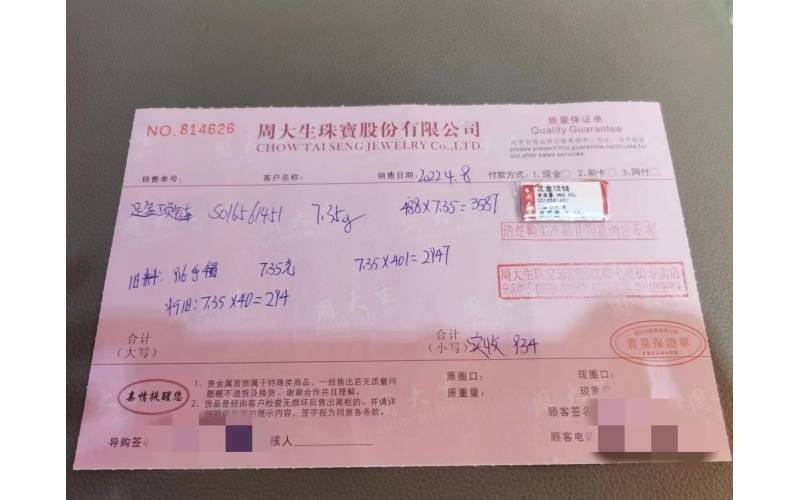 NO.814626
周大生珠寶股份有限公司
CHOW TAI SENG JEWELRY Co.,LTD.
质量保证单
Quality Guarantee
please present this guarantee certificate for
our after sales services
销售单号:
客户名称:
销售日期: 2022.4.8
付款方式:1.现金 2.刷卡 3.网付
足金项链 S016561451 7.35g 488×7.35=3587
足金项链
S016561451
旧料: 916手镯 7.35克 7.35×401=2947
折旧: 7.35×40=294
周大生
合计
(大写)
合计
(小写) 实收 934
質量保證單
真情提醒您
1、贵金属首饰属于特殊类商品,一经售出若无质量问
题概不退货及换货,谢谢合作并且理解。
2、货品是经由客户检查无损坏后售出离柜的。并请详
的提示内容、签字视为同意各条款。
原圈口:
现圈口:
原重量:
现重
顾客签
顾客电话
导购签
核人